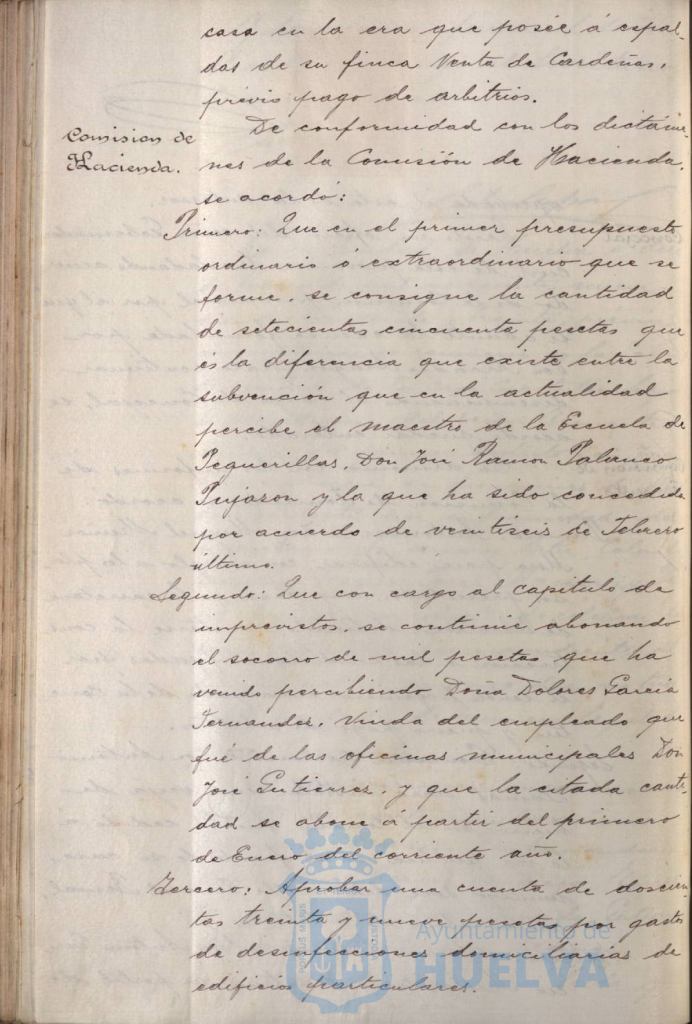 casa en la era que posée á espal-
das de su finca Venta de Cardeñas,
previo pago de arbitrios.
Comision de
Hacienda.
De conformidad con los dictáme-
nes de la Comisión de Hacienda,
se acordó:
Primero: Que en el primer presupuesto
ordinario ó extraordinario que se
forme, se consigne la cantidad
de setecientas cincuenta pesetas que
és la diferencia que existe entre la
subvención que en la actualidad
percibe el maestro de la Escuela de
Peguerillas, Don José Ramon Palanco
Pujazon y la que ha sido concedida
por acuerdo de veintiseis de Febrero
último.
Segundo: Que con cargo al capitulo de
imprevistos, se continúe abonando
el socorro de mil pesetas que ha
venido percibiendo Doña Dolores García
Fernandez, viuda del empleado que
fué de las oficinas municipales Don
José Gutierrez, y que la citada canti-
dad se abone á partir del primero
de Enero del corriente año.
Tercero: Aprobar una cuenta de doscien-
tas treinta y nueve pesetas por gastos
de desinfecciones domiciliarias de
edificios particulares.
Ayuntamiento de
HUELVA